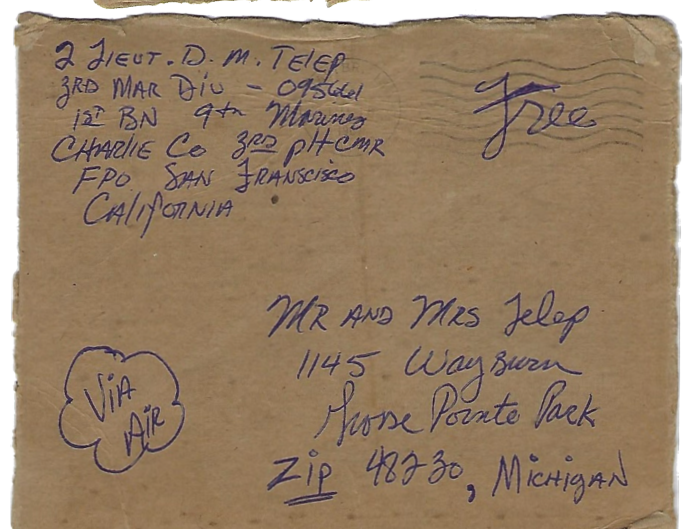 2 LIEUT. D. M. TELEP
3RD MAR DIV - 095661
1ST BN 9th Marines
CHARLIE Co 3RD PLT CMR
FPO SAN FRANSCISCO
CALIFORNIA
Free
MR AND MRS Telep
1145 Wayburn
Grosse Pointe Park
Zip 48230, MICHIGAN
VIA
AIR